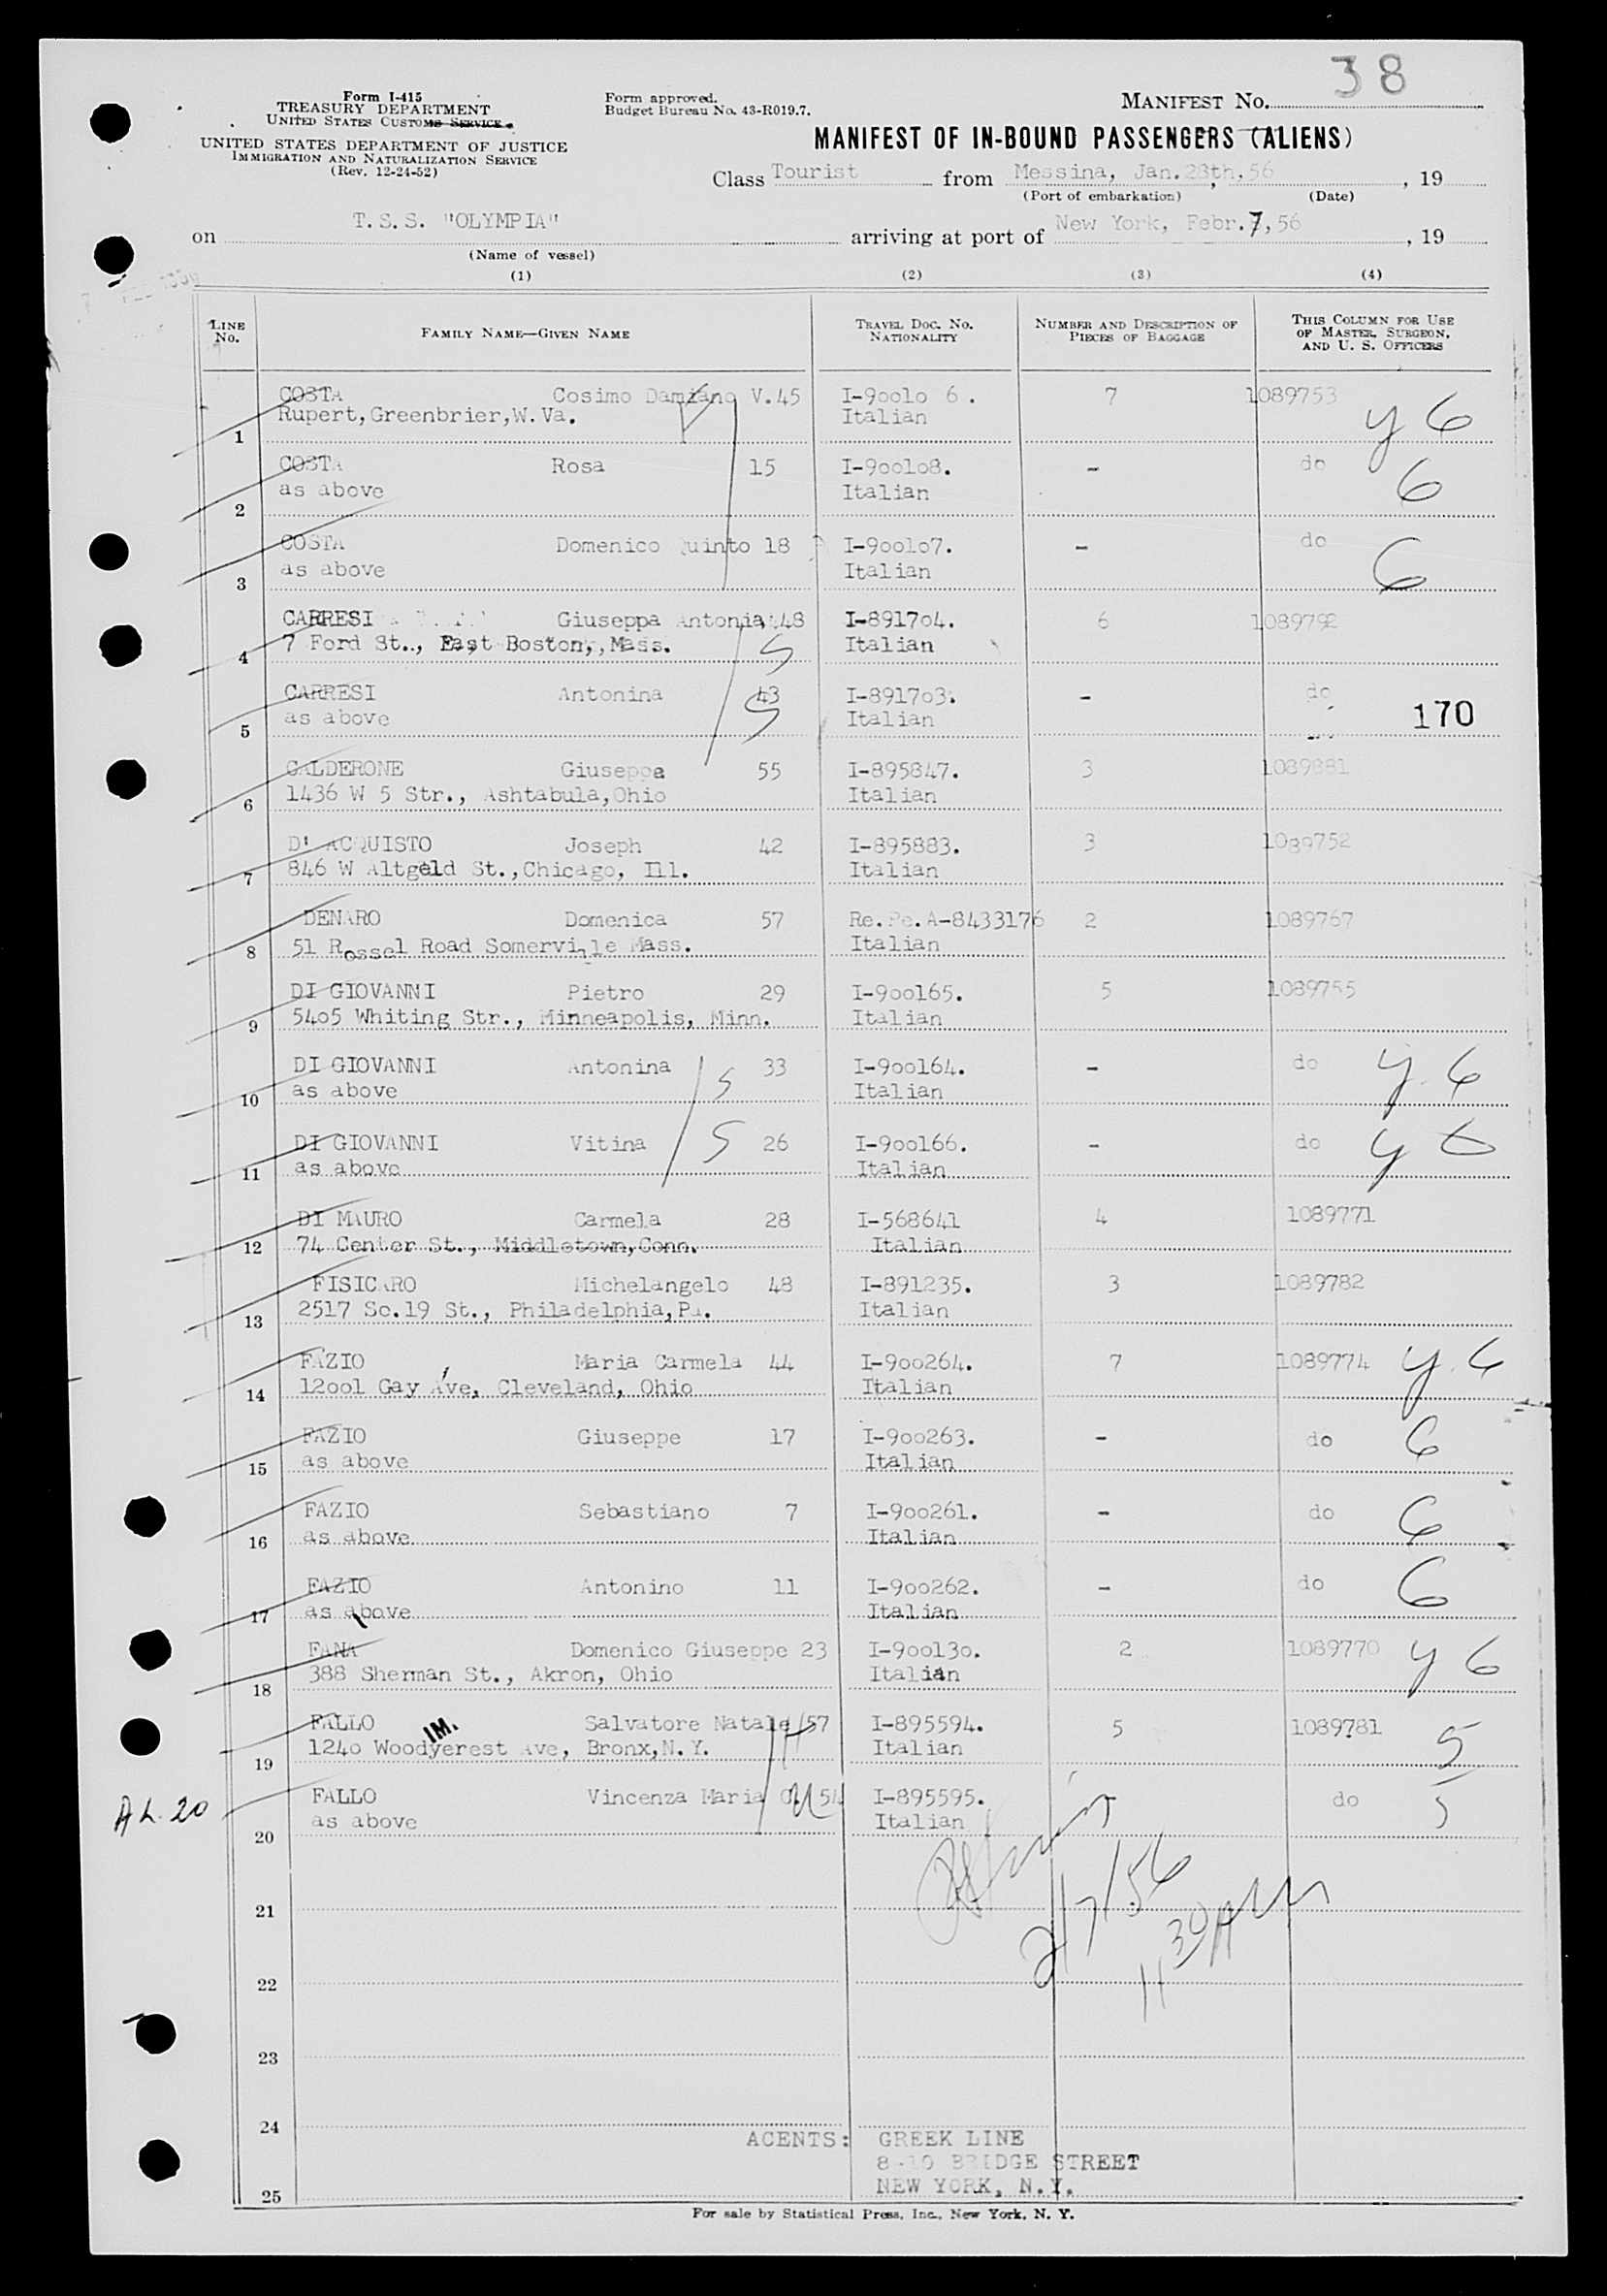 38
Form I-415
TREASURY DEPARTMENT
UNITED STATES CUSTOMS SERVICE
UNITED STATES DEPARTMENT OF JUSTICE
IMMIGRATION AND NATURALIZATION SERVICE
(Rev. 12-24-52)
Form approved.
Budget Bureau No. 43-R019.7.
MANIFEST No.
MANIFEST OF IN-BOUND PASSENGERS (ALIENS)
Class Tourist from Messina, Jan.28th,56, 19
(Port of embarkation) (Date)
on T.S.S. "OLYMPIA" arriving at port of New York, Febr.7,56, 19
(Name of vessel)
(1) (2) (3) (4)
LINE No. FAMILY NAME—GIVEN NAME TRAVEL DOC. No. NATIONALITY NUMBER AND DESCRIPTION OF PIECES OF BAGGAGE THIS COLUMN FOR USE OF MASTER, SURGEON, AND U. S. OFFICERS
COSTA Cosimo Damiano V.45 I-9oolo 6. 7 1089753
1 Rupert,Greenbrier,W.Va. Italian y 6
COSTA Rosa 15 I-9oolo8. - do
2 as above Italian 6
COSTA Domenico Quinto 18 I-9oolo7. - do
3 as above Italian 6
CARRESI Giuseppa Antonia 48 I-8917o4. 6 1089792
4 7 Ford St., East Boston, Mass. S Italian
CARRESI Antonina 43 I-8917o3. - do
5 as above S Italian 170
CALDERONE Giuseppa 55 I-895847. 3 1089881
6 1436 W 5 Str., Ashtabula,Ohio Italian
D' ACQUISTO Joseph 42 I-895883. 3 1089752
7 846 W Altgeld St.,Chicago, Ill. Italian
DENARO Domenica 57 Re.Pe.A-8433176 2 1089767
8 51 Rossel Road Somerville Mass. Italian
DI GIOVANNI Pietro 29 I-9oo165. 5 1089755
9 54o5 Whiting Str., Minneapolis, Minn. Italian
DI GIOVANNI Antonina 33 I-9oo164. - do y 6
10 as above S Italian
DI GIOVANNI Vitina S 26 I-9oo166. - do y 6
11 as above Italian
DI MAURO Carmela 28 I-568641 4 1089771
12 74 Center St., Middletown,Conn. Italian
FISICARO Michelangelo 48 I-891235. 3 1089782
13 2517 So.19 St., Philadelphia,Pa. Italian
FAZIO Maria Carmela 44 I-9oo264. 7 1089774 y 6
14 12ool Gay Ave, Cleveland, Ohio Italian
FAZIO Giuseppe 17 I-9oo263. - do 6
15 as above Italian
FAZIO Sebastiano 7 I-9oo261. - do 6
16 as above Italian
FAZIO Antonino 11 I-9oo262. - do 6
17 as above Italian
FANA Domenico Giuseppe 23 I-9oo13o. 2 1089770 y 6
18 388 Sherman St., Akron, Ohio Italian
FALLO Salvatore Natale 57 I-895594. 5 1089781 5
19 124o Woodyerest Ave, Bronx,N.Y. IM. Italian
FALLO Vincenza Maria 54 I-895595. - do 5
AL. 20
20 as above Italian
21
2/7/56
22
11 30 AM
23
24
ACENTS: GREEK LINE
8-10 BRIDGE STREET
25 NEW YORK, N.Y.
For sale by Statistical Press, Inc., New York, N. Y.